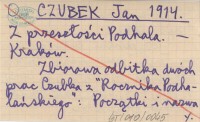 CZUBEK Jan 1914.
Z przeszłości Podhala. –
Kraków.
Zbiorowa odbitka dwóch
prac Czubka z "Rocznika Podha-
lańskiego": Początki i nazwa